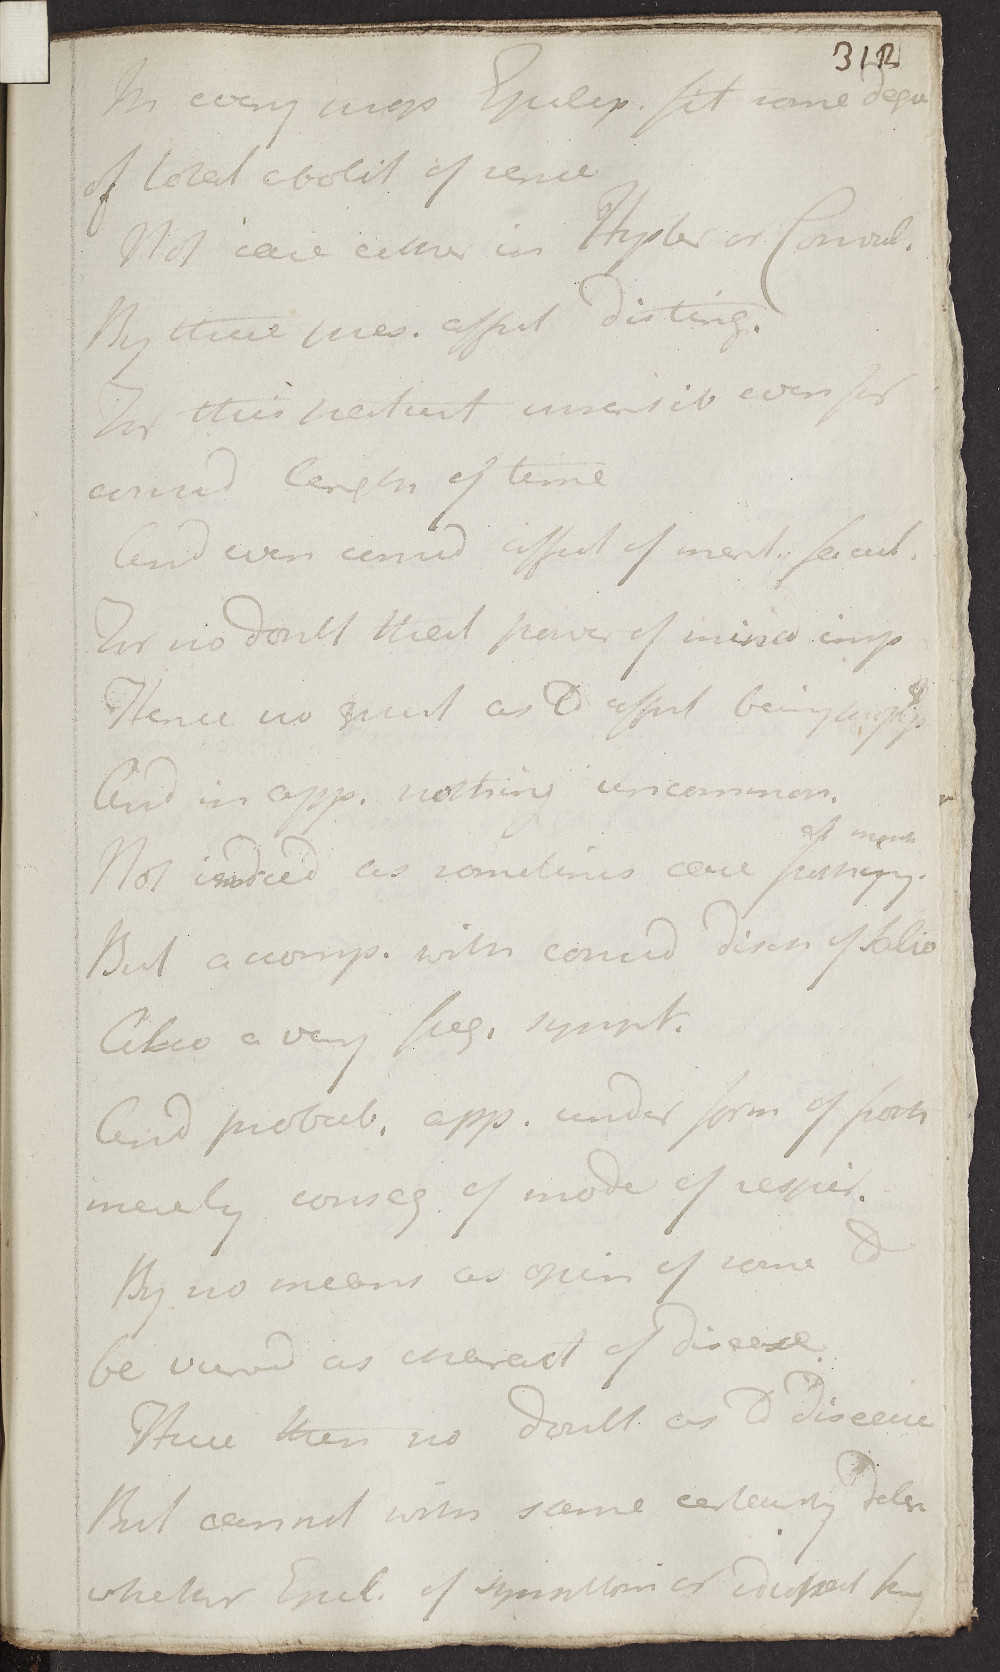 312
In every Epilep. fit some Degr
of total abolit of sense
Not case either in Hyster or Convul.
By these affect disting.
For this patient insensib even for
consid length of time
And even consid affect of ment. facul.
For no doubt that power of mind imp
Hence no quest as to affect being
And in app. nothing uncommon.
at mouth
Not indeed as sometimes case
But accomp. with consid disch of Saliv
Also a very freq. sympt.
And probab. app. under form of froth
merely conseq of mode of respir.
By no means as opin of some to
be viewed as charact of disease
There then no doubt as to disease
But cannot with same certainty deter
whether Epil. of symptom or